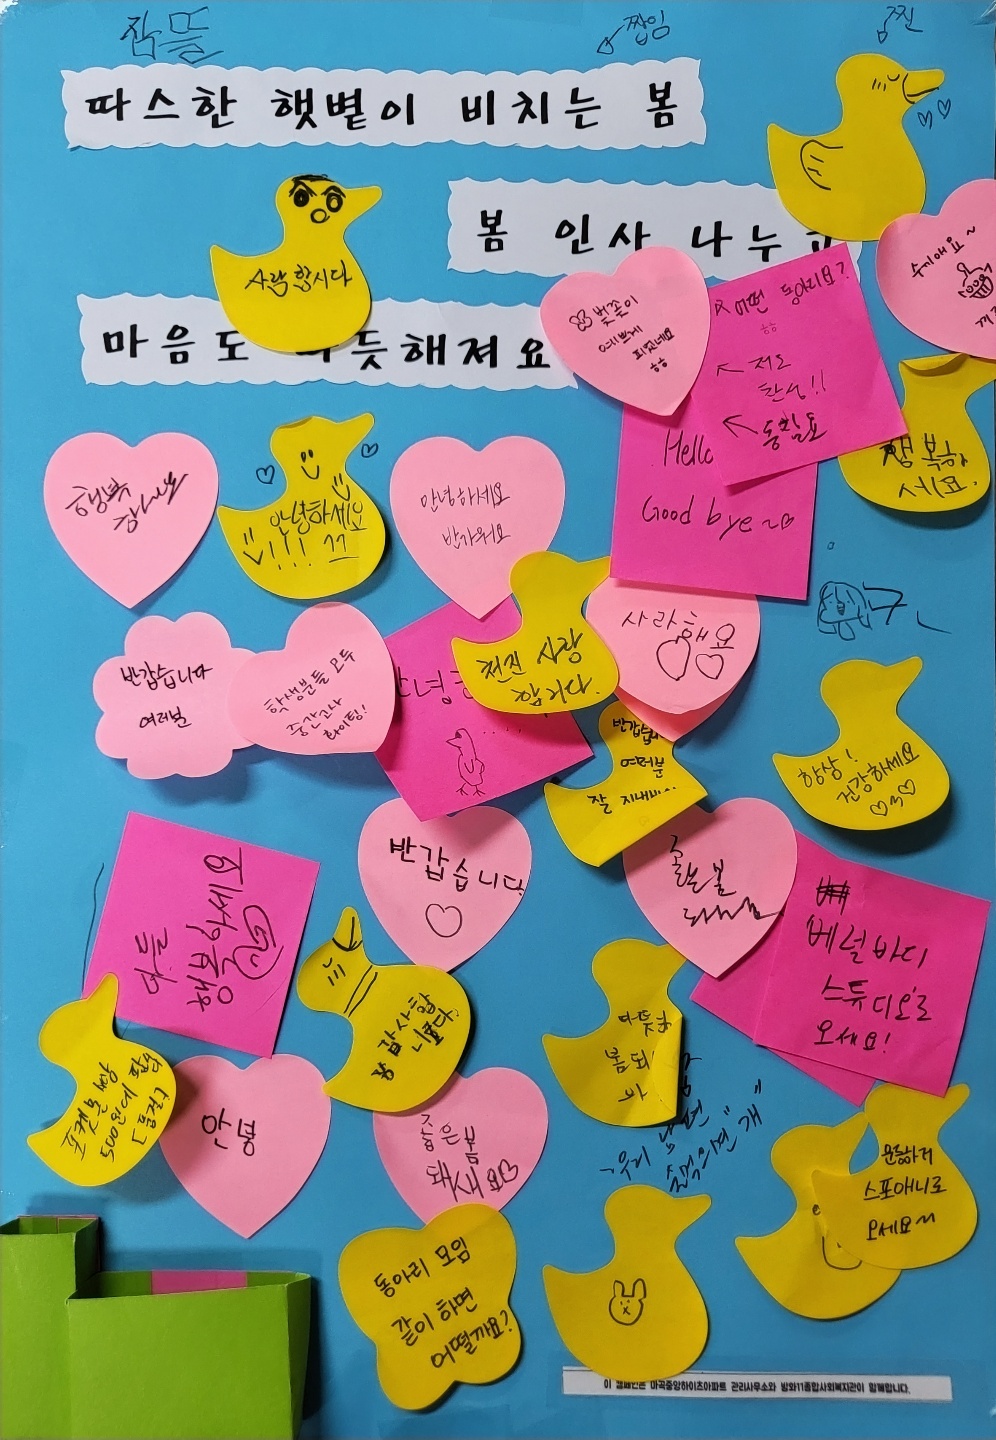 따스한 햇볕이 비치는 봄
봄 인사 나누고
마음도 따듯해져요
사랑합시다
벚꽃이
예쁘게
피었네요
ㅎㅎ
어떤 동아리요?
ㅎㅎ
저도
찬성!!
동참요
Hello
Good bye~
행복하
세요.
행복
안녕하세요
!!!! ㄱㄱ
안녕하세요
반가워요
반갑습니다
여러분
학생분들 모두
중간고사
화이팅!
천진 사랑
합니다.
사랑해요
반갑습니다
여러분
잘 지내
항상!
건강하세요
반갑습니다
좋은봄
베럴바디
스튜디오로
오세요!
감사합
니다.
따듯한
봄 되
안녕
좋은봄
돼세요
우리 남편
"개"
운동하러
스포애니로
오세요~
동아리 모임
같이 하면
어떨까요?
이 캠페인은 마곡중앙하이츠아파트 관리사무소와 방화11종합사회복지관이 함께합니다.